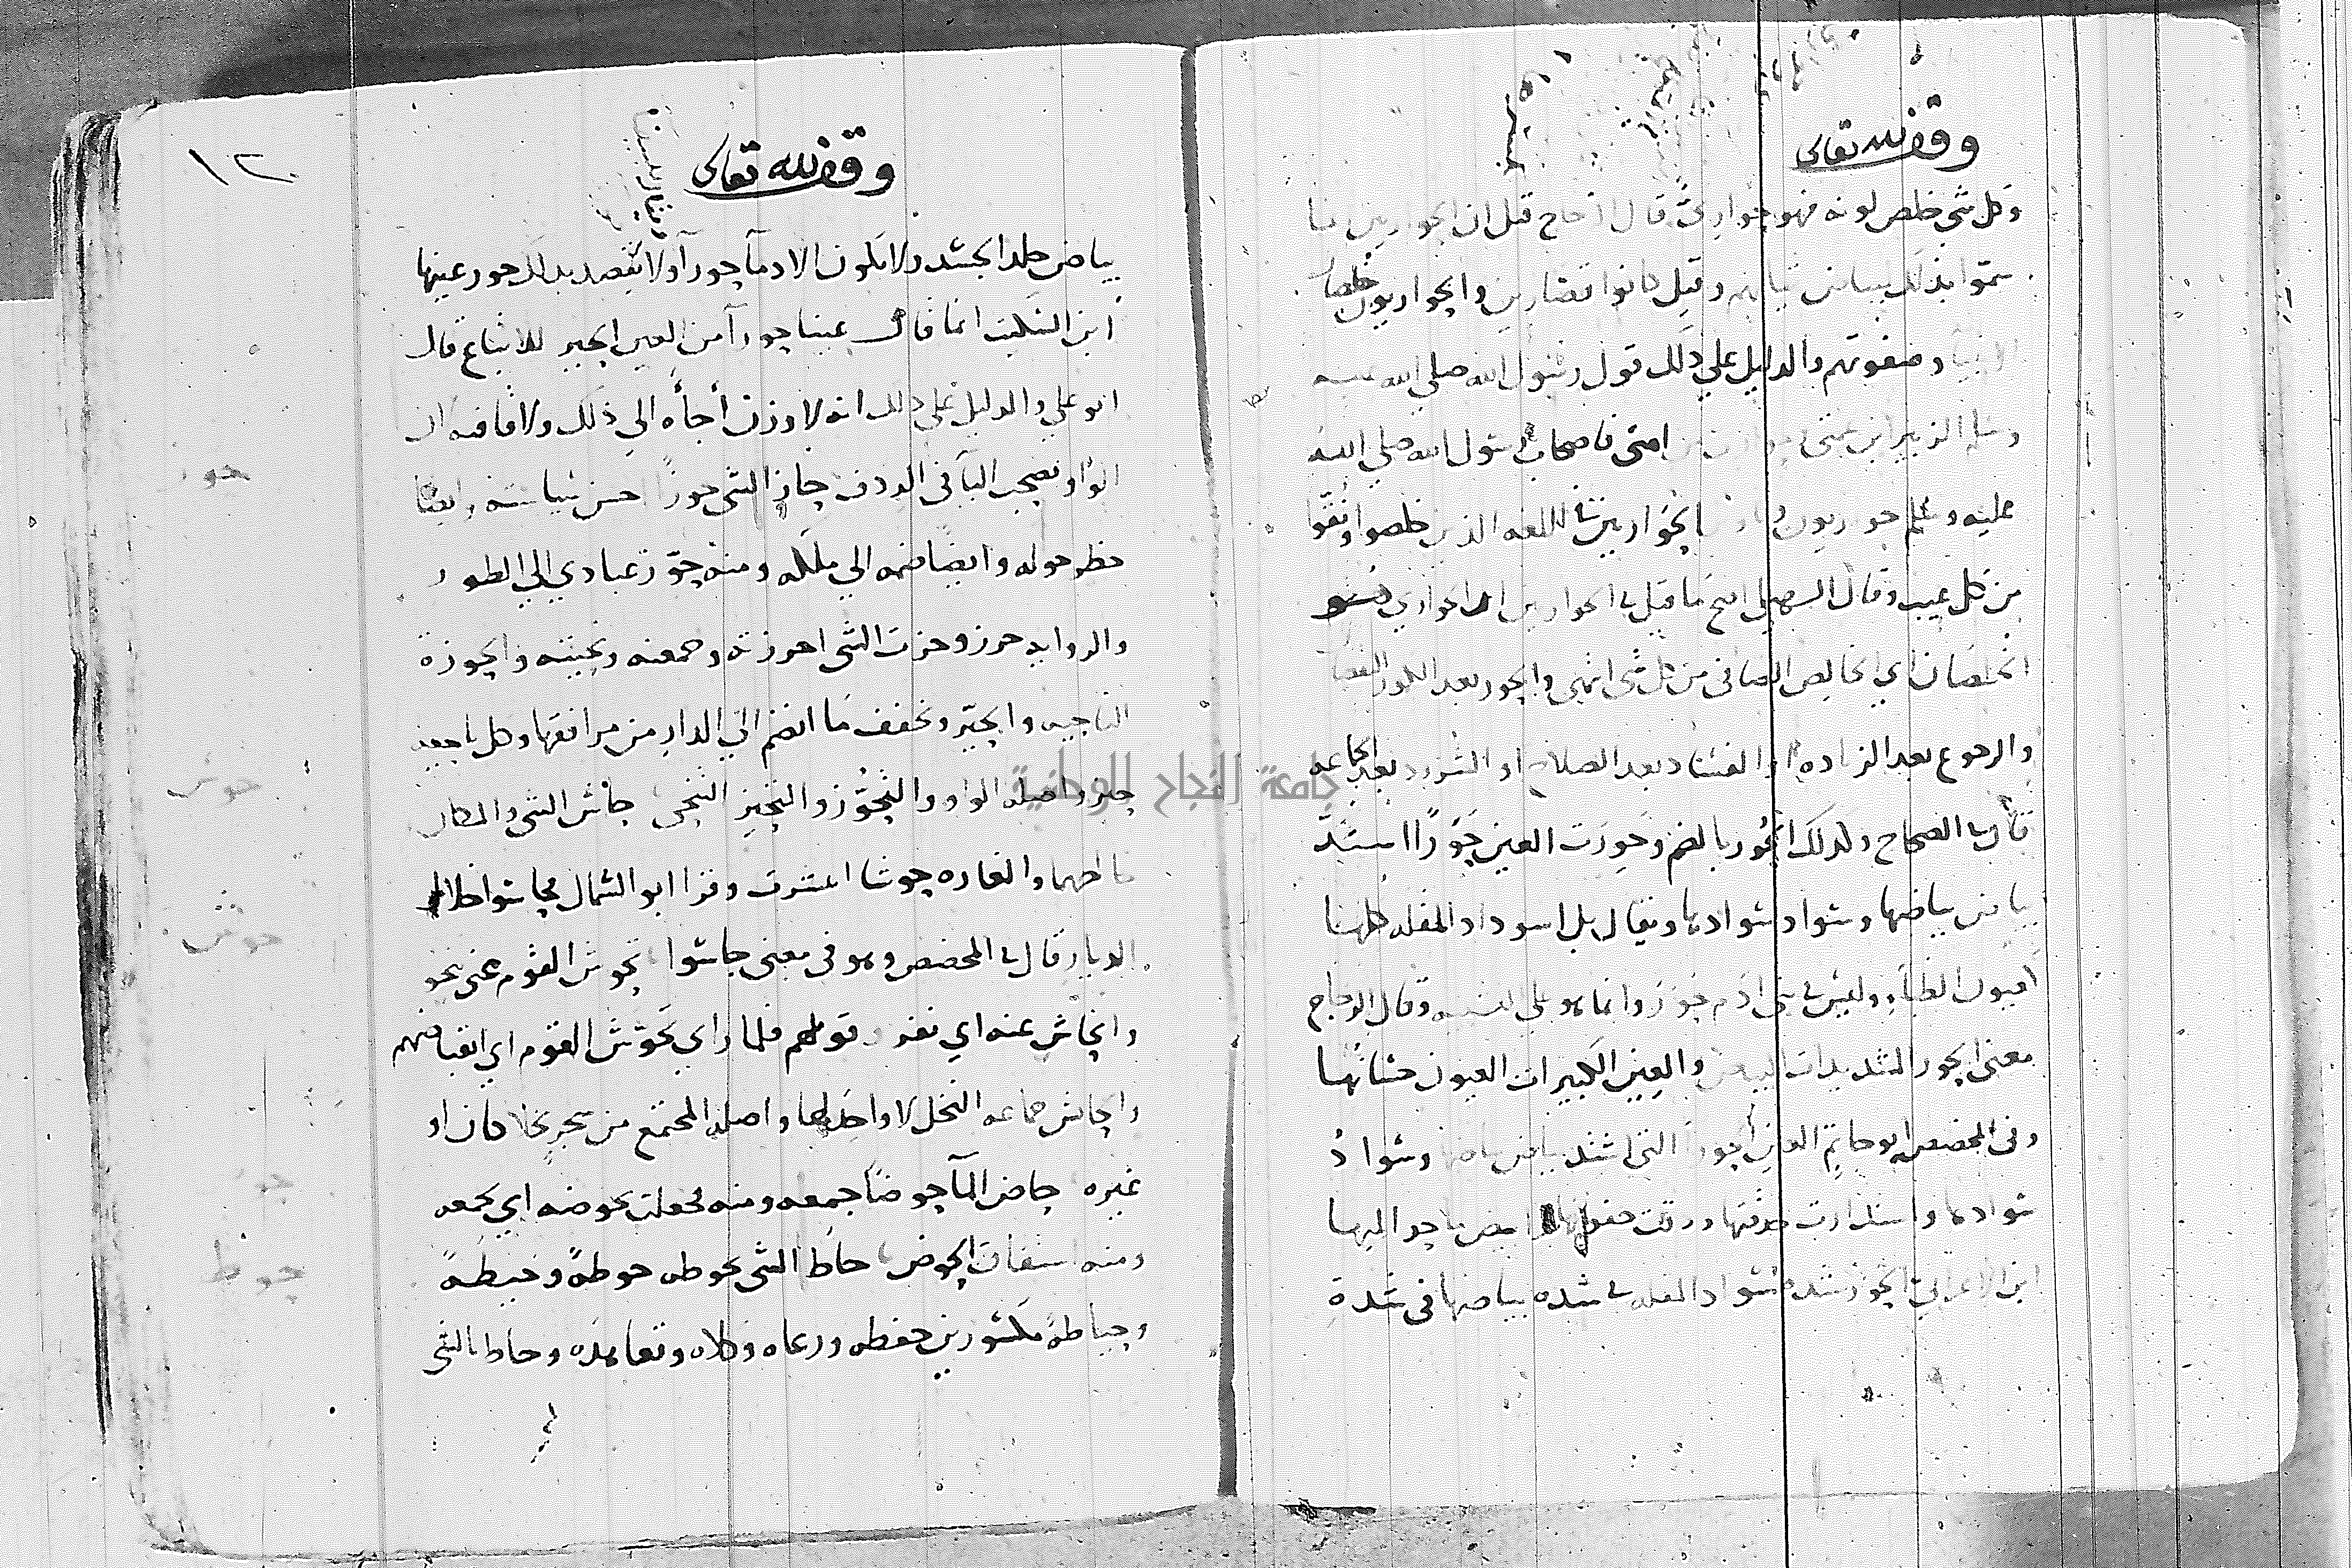 وقف لله تعالى
وكل شي خلص لونه فهو حواري قال الزجاج قيل ان الحواريين انما
سموا بذلك لبياض ثيابهم وقيل كانوا قصارين والحواريون خلصا
الانبيا وصفوتهم والدليل علي ذلك قول رسول الله صلي الله عليه
وسلم الزبير ابن عمتي وحواري من امتي فاصحاب رسول الله صلي الله
عليه وسلم حواريون و الحواريين في اللغه الذين خلصوا ونقوا
من كل عيب وقال السهيلي اصح ما قيل في الحواريين ان الحواري هو
الخلصان اي الخالص الصافي من كل شي انتهي والحور بعد الكور النقصان
والرجوع بعد الزياده او الفساد بعد الصلاح او الشرود بعد الجماعه
قال في الصحاح وكذلك الحور بالضم وحورت العين حورًا اشتد
بياض بياضها وسواد سوادها ويقال بل اسوداد المقله كلها
كعيون الظباء وليس في بني ادم حور وانما هو علي التشبيه وقال الزجاج
معنى الحور الشديدات البياض والعين الكبيرات العيون حسانها
وفي المخصص ابو حاتم العين الحورا التي اشتد بياض بياضها وسواد
سوادها واستدارت حدقتها ورقت جفونها وابيض ما حواليها
ابن الاعرابي الحور شدة سواد المقله في شده بياضها في شدة
وقف لله تعالى
١٢
بياض جلد الجسد ولا تكون الادمآ حورآ ولا يقصد بذلك حور عينها
ابن السكيت انما قال عينا حورآ من العين الحير للاتباع قال
ابو علي والدليل علي ذلك انه لا وزن أجأه الي ذلك ولا قافيه لان
الواو تصحب اليآ في الردف حاز الشى حوزًا احسن سياسته وايضا
حوز
حظر حوله وايضا ضمه الي ملكه ومنه حوّز عبادي الي الطور
والروايه حرز وحزت الشى احرزته وجمعته ونحيته والحوزة
الناحيه والحيّز وتخفف ما انضم الي الدار من مرافقها وكل ناحيه
حيز واصله الواو والتحوّز والتحيز التنحى حاش الشى والمكان
حوش
ناحهما والغاره حوشا انتشرت وقرا ابو السمال فحاسوا خلال
حوش
الديار قال في المخصص وهو في معنى جاسوا تحوش القوم عنى تنحو
وانحاش عنه اي نفر وقولهم فلما راي تحوّش القوم اي انقباضهم
والحاش جماعه النخل لا واحد لها واصله المجتمع من شجر نخلا كان او
غيره حاض المآ حوضًا جمعه ومنه فجعلت تحوضه اي تجمعه
ومنه اشتقاق الحوض حاط الشى يحوطه حوطةً وحيطةً
حوط
وحياطةً مكسورين حفظه ورعاه وكلاه وتعاهده وحاط بالشى
جامعة النجاح الوطنية